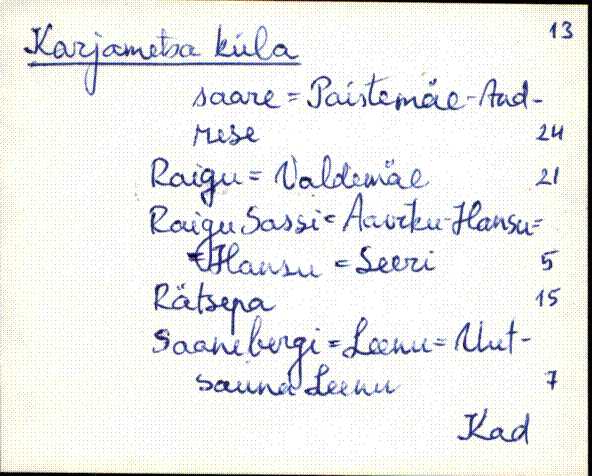 Karjametsa küla 13
saare = Paistemäe-And-
rese 24
Raigu = Valdemäe 21
Raigu Sassi = Aaviku-Hansu =
Hansu = Seeri 5
Rätsepa 15
Saanebergi = Leenu = Uut-
sauna Leenu 7
Kad